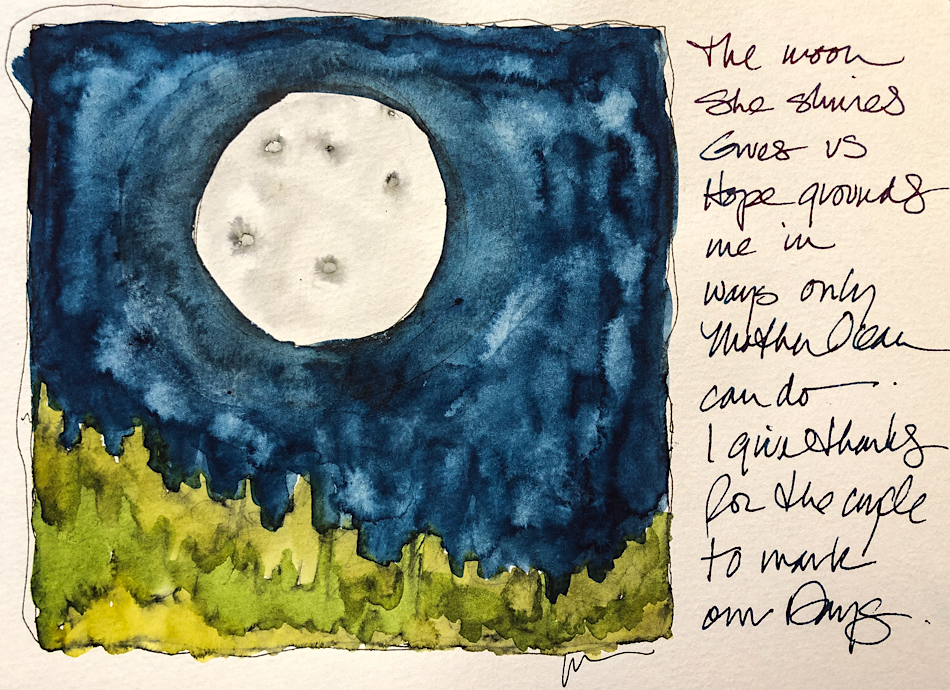 The moon
She shines
Gives us
Hope grounds
me in
ways only
Mother Ocean
can do.
I give thanks
for the cycle
to mark
our Days.